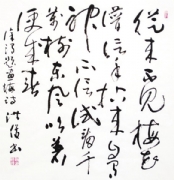 從來不見梅花
譜信手拈來自有
神不信試看千
萬樹東風吹着
便成春
畫梅詩